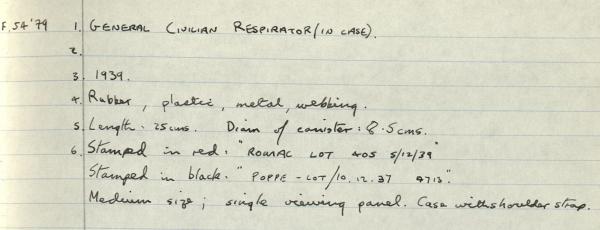 F.54'79 1. GENERAL CIVILIAN RESPIRATOR (IN CASE).
2.
3. 1939.
4. Rubber, plastic, metal, webbing.
5. Length: 25cms. Diam of canister: 8.5cms.
6. Stamped in red: "ROMAC LOT 405 5/12/39"
Stamped in black: "POPPE - LOT/10.12.37 4713".
Medium size; single viewing panel. Case with shoulder strap.